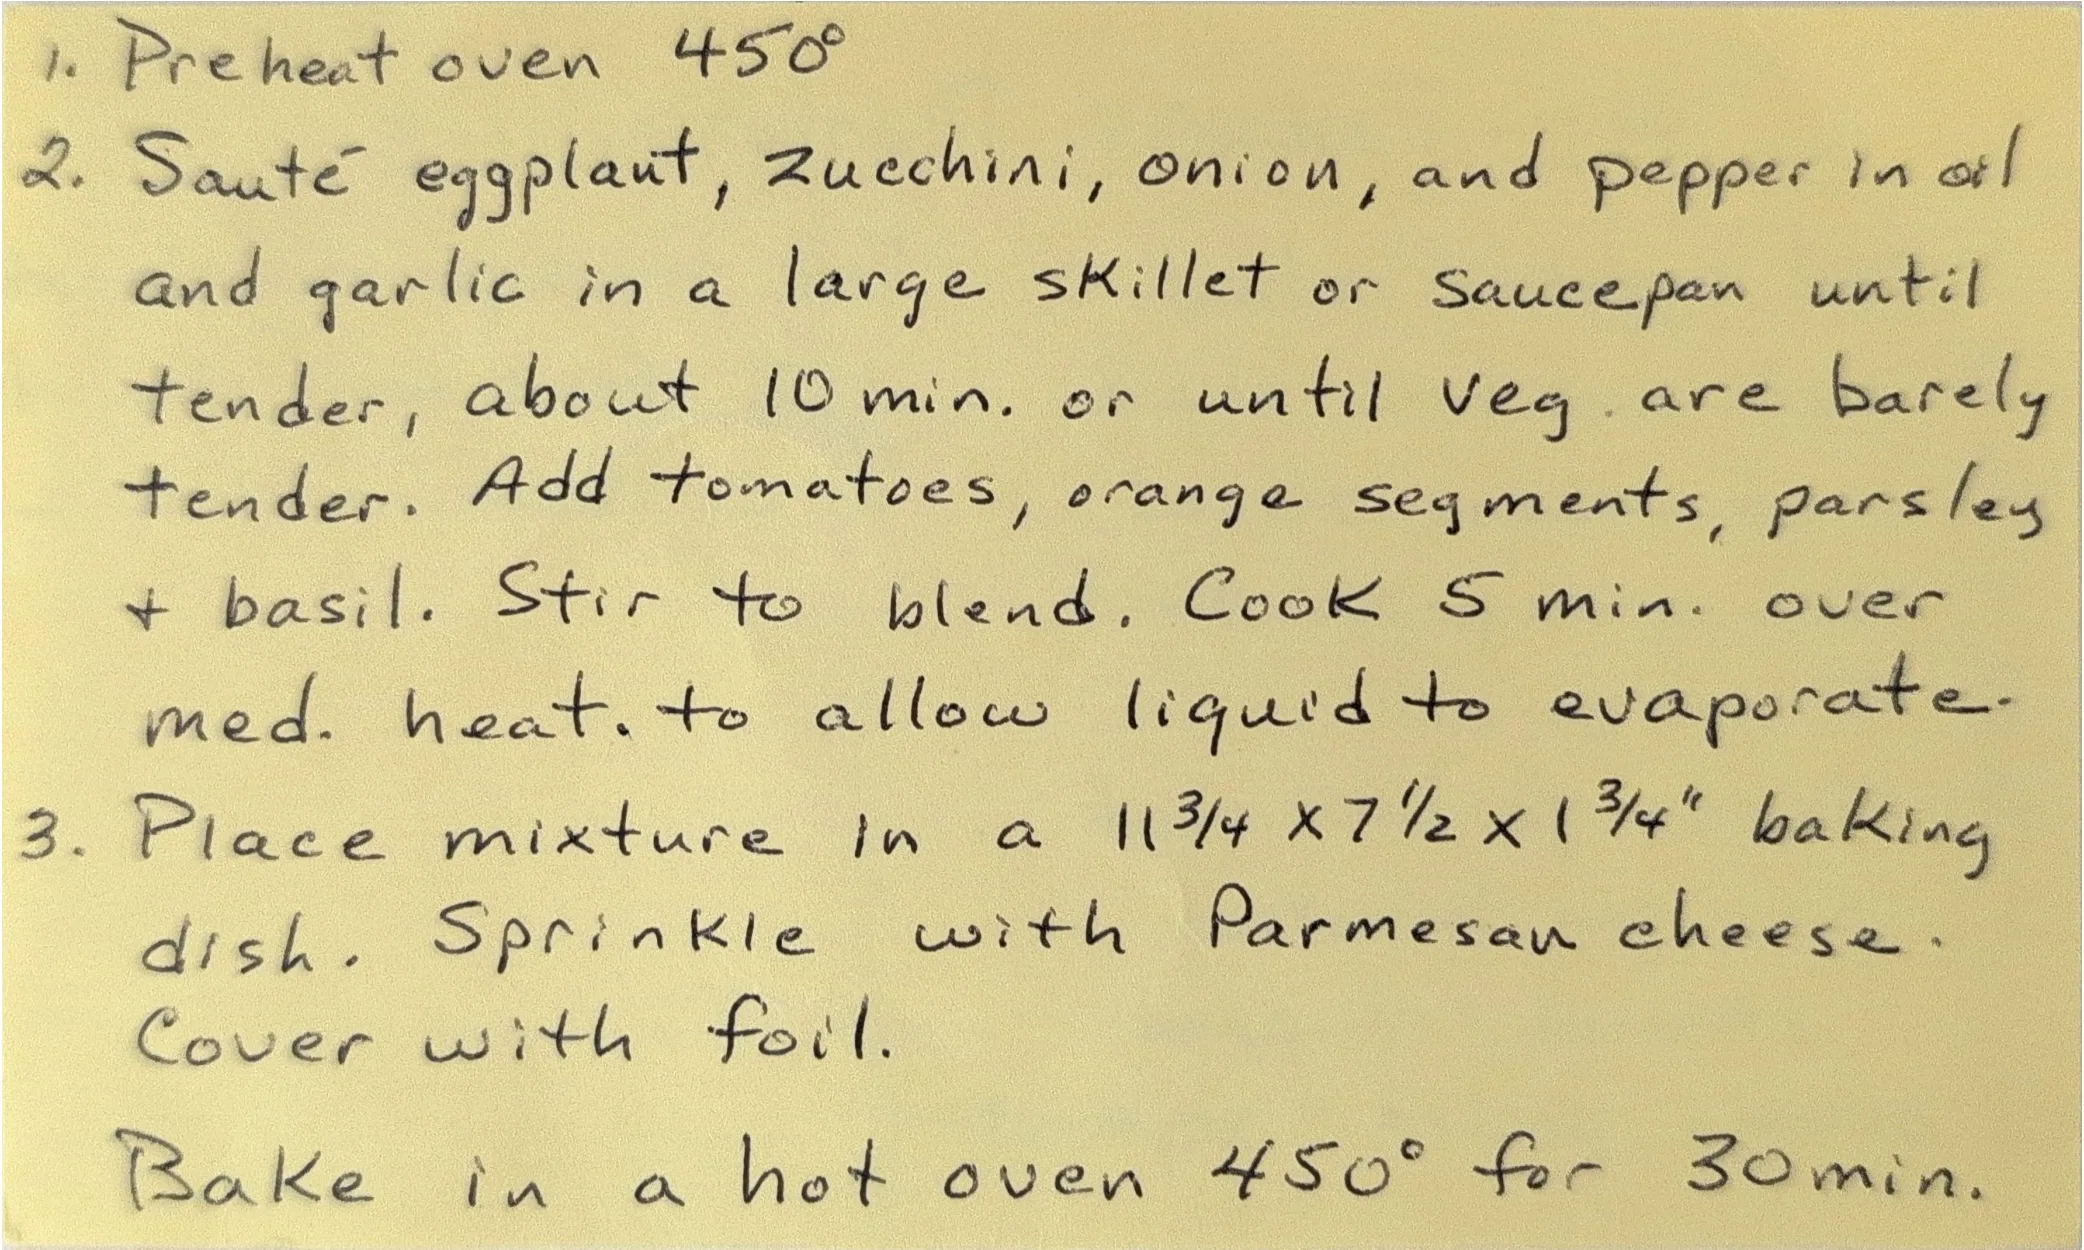 1. Preheat oven 450°
2. Sauté eggplant, zucchini, onion, and pepper in oil
and garlic in a large skillet or saucepan until
tender, about 10 min. or until veg. are barely
tender. Add tomatoes, orange segments, parsley
+ basil. Stir to blend. Cook 5 min. over
med. heat. to allow liquid to evaporate.
3. Place mixture in a 11 3/4 x 7 1/2 x 1 3/4" baking
dish. Sprinkle with Parmesan cheese.
Cover with foil.
Bake in a hot oven 450° for 30 min.